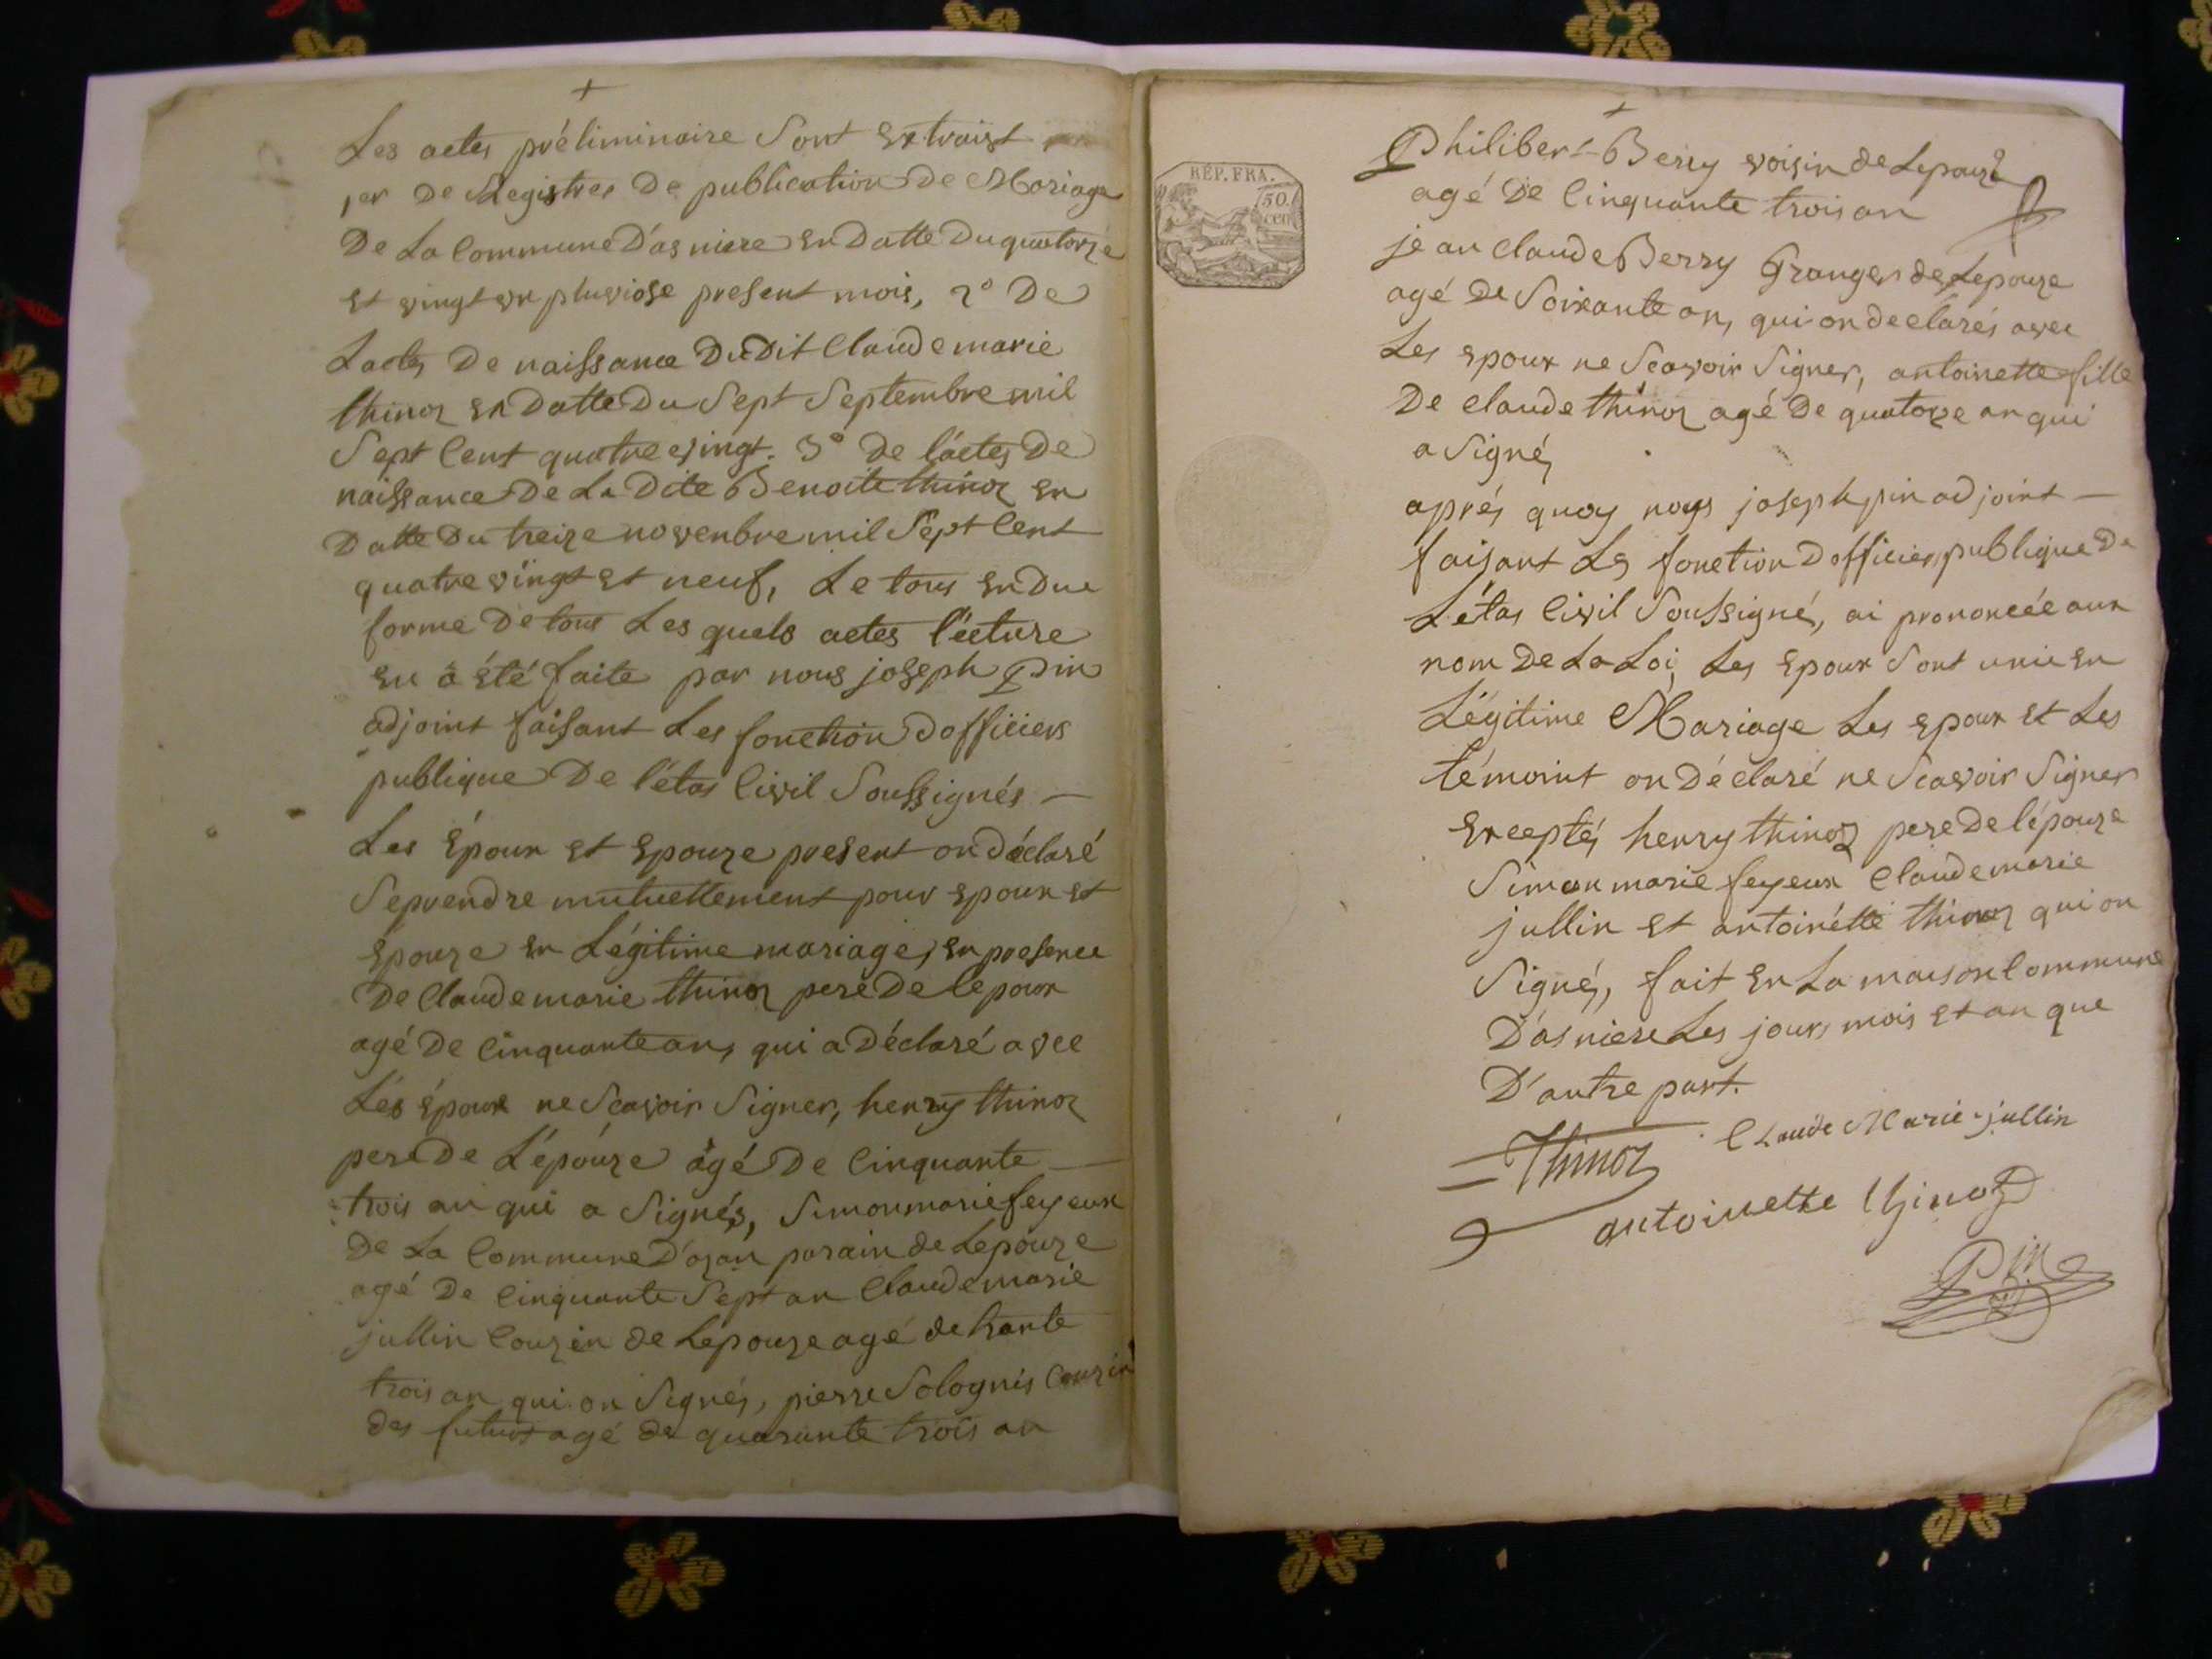 Les actes préliminaire sont Extraist
1er De Registres De publication De Mariage
De La Commune D'asniere En Datte Du quatorze
Et vingt un pluviose present mois, 2° De
L'actes De naissance DuDit Claude marie
thinoz En Datte Du Sept Septembre mil
Sept Cent quatre vingt. 3° De l'actes De
naissance De La Dite Benoite thinoz En
Datte Du treize novenbre mil Sept Cent
quatre vingt Et neuf, Le tous En Due
forme De tous Les quels actes l'écture
En a été faite par nous joseph Pin
adjoint faisant Les fonction D'officiers
publique De l'étas Civil Soussignés —
Les Époux Et Epouze present on Déclaré
Se prendre mutuellement pour Epoux Et
Epouze En Légitime mariage, En presence
De Claude marie thinoz pere De l'epoux
agé De Cinquante an, qui a Déclaré avec
Lés époux ne Scavoir Signer, henry thinoz
pere De L'épouze agé De Cinquante —
trois an qui a Signés, Simon marie feyeux
De La Commune D'ozan parain de Lepouze
agé De Cinquante Sept an Claude marie
jullin Couzin de Lepouze agé de trante
trois an qui on Signés, pierre Solognis Couzin
des futurs agé de quarante trois an
RÉP. FRA.
50.
cen
Philibert Berry voisin de Lepouze
agé De Cinquante trois an
jean Claude Berry Granger de Lepouze
agé De Soixante an, qui on declarés avec
Les Epoux ne Scavoir Signer, antoinette fille
De claude thinoz agé De quatorze an qui
a Signé,
aprés quoy nous joseph pin adjoint —
faisant Les fonction D'officier publique De
L'étas Civil Soussigné, ai prononcée aux
nom De La Loi, Les Epoux Sont unie En
Légitime Mariage Les Epoux Et Les
témoint on Déclaré ne Scavoir Signer
Exceptés henry thinoz pere De l'épouze
Simon marie feyeux Claude marie
jullin Et antoinétte thinoz qui on
Signé, fait En La maison Commune
D'asniere Les jours mois Et an que
D'autre part.
Thinoz Claude Marie jullin
antoinette thinoz
Pin